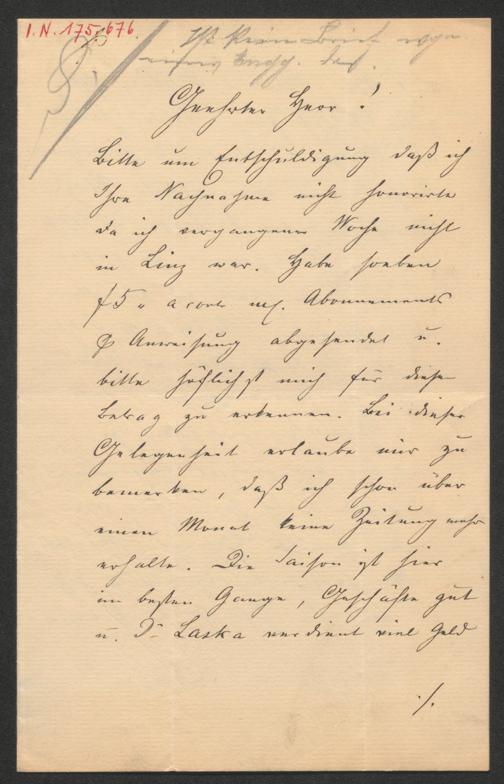 I.N. 175.676.
Ist kein Brief
Geehrter Herr!
Bitte um Entschuldigung daß ich
Ihre Nachnahme nicht honorirte
da ich vergangene Woche nicht
in Linz war. Habe soeben
f 5 „ a conto m/. Abonnements
p Anweisung abgesendet u.
bitte höflichst mich für diesen
Betrag zu erkennen. Bei dieser
Gelegenheit erlaube mir zu
bemerken, daß ich schon über
einen Monat keine Zeitung mehr
erhalte. Die Saison ist hier
im besten Gange, Geschäfte gut
u. Dr Laska verdient viel Geld
./.